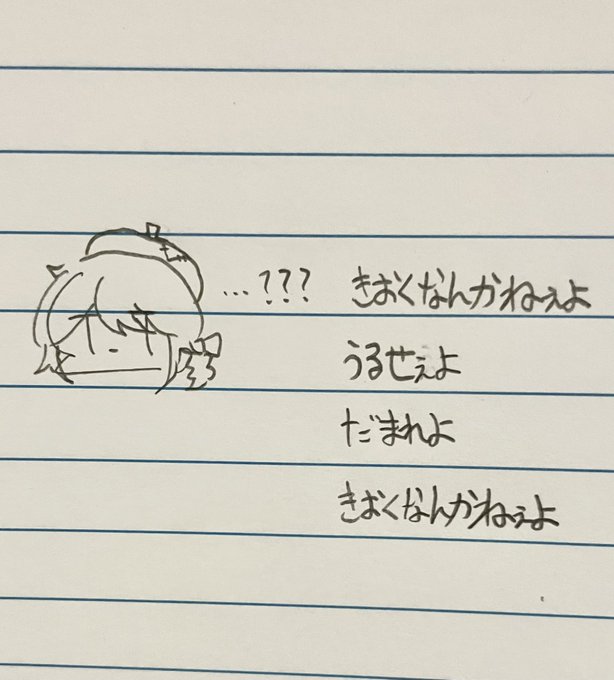 …???
きおくなんかねぇよ
うるせぇよ
だまれよ
きおくなんかねぇよ